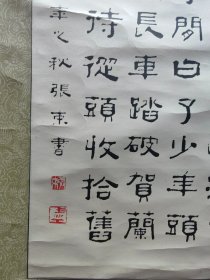 閒白了少年頭
長車踏破賀蘭
待從頭收拾舊
之秋張東書